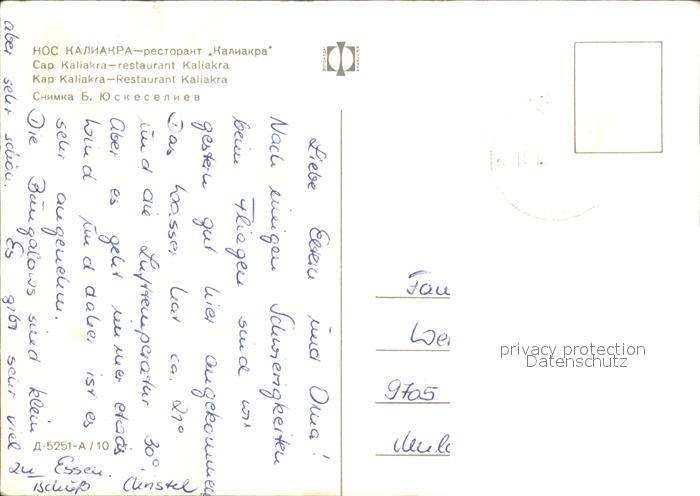 НОС КАЛИАКРА—ресторант „Калиакра“
Cap Kaliakra—restaurant Kaliakra
Kap Kaliakra—Restaurant Kaliakra
Снимка Б. Юскеселиев
Liebe Eltern und Oma!
Nach einigen Schwierigkeiten
beim Fliegen sind wir
gestern gut hier angekommen
Das Wasser hat ca. 21°
und die Lufttemperatur 30°.
Aber es geht immer etwas
Wind und daher ist es
sehr angenehm.
Die Bungalows sind klein
aber sehr schön. Es gibt sehr viel
zu Essen.
Tschüß Christel
Д-5251-А/10 ст.
Fam
Wer
9705
privacy protection
Datenschutz